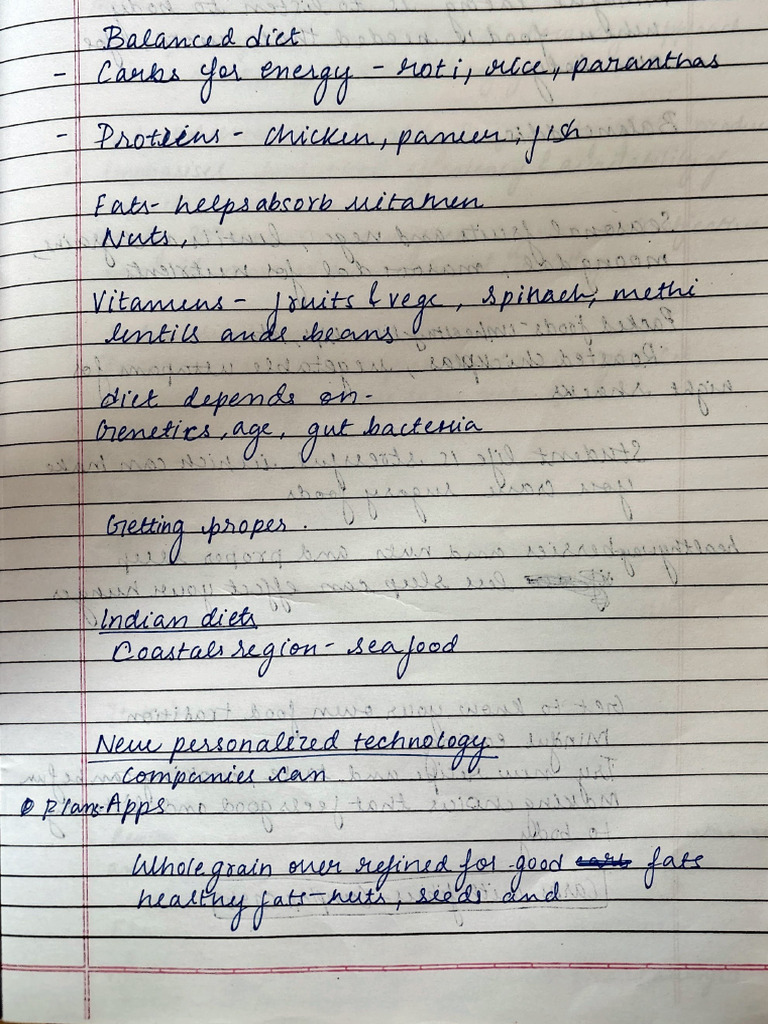 Balanced diet
- Carbs for energy - roti, rice, paranthas
- Proteins - chicken, paneer, fish
Fats- helps absorb vitamen
Nuts,
Vitamins - fruits & vegs, spinach, methi
lentils and beans
diet depends on-
Genetics, age, gut bacteria
Getting proper.
Indian diets
Coastal region - seafood
New personalized technology
Companies can
Plans-Apps
Whole grain over refined for good carb fats
healthy fats-nuts, seeds and